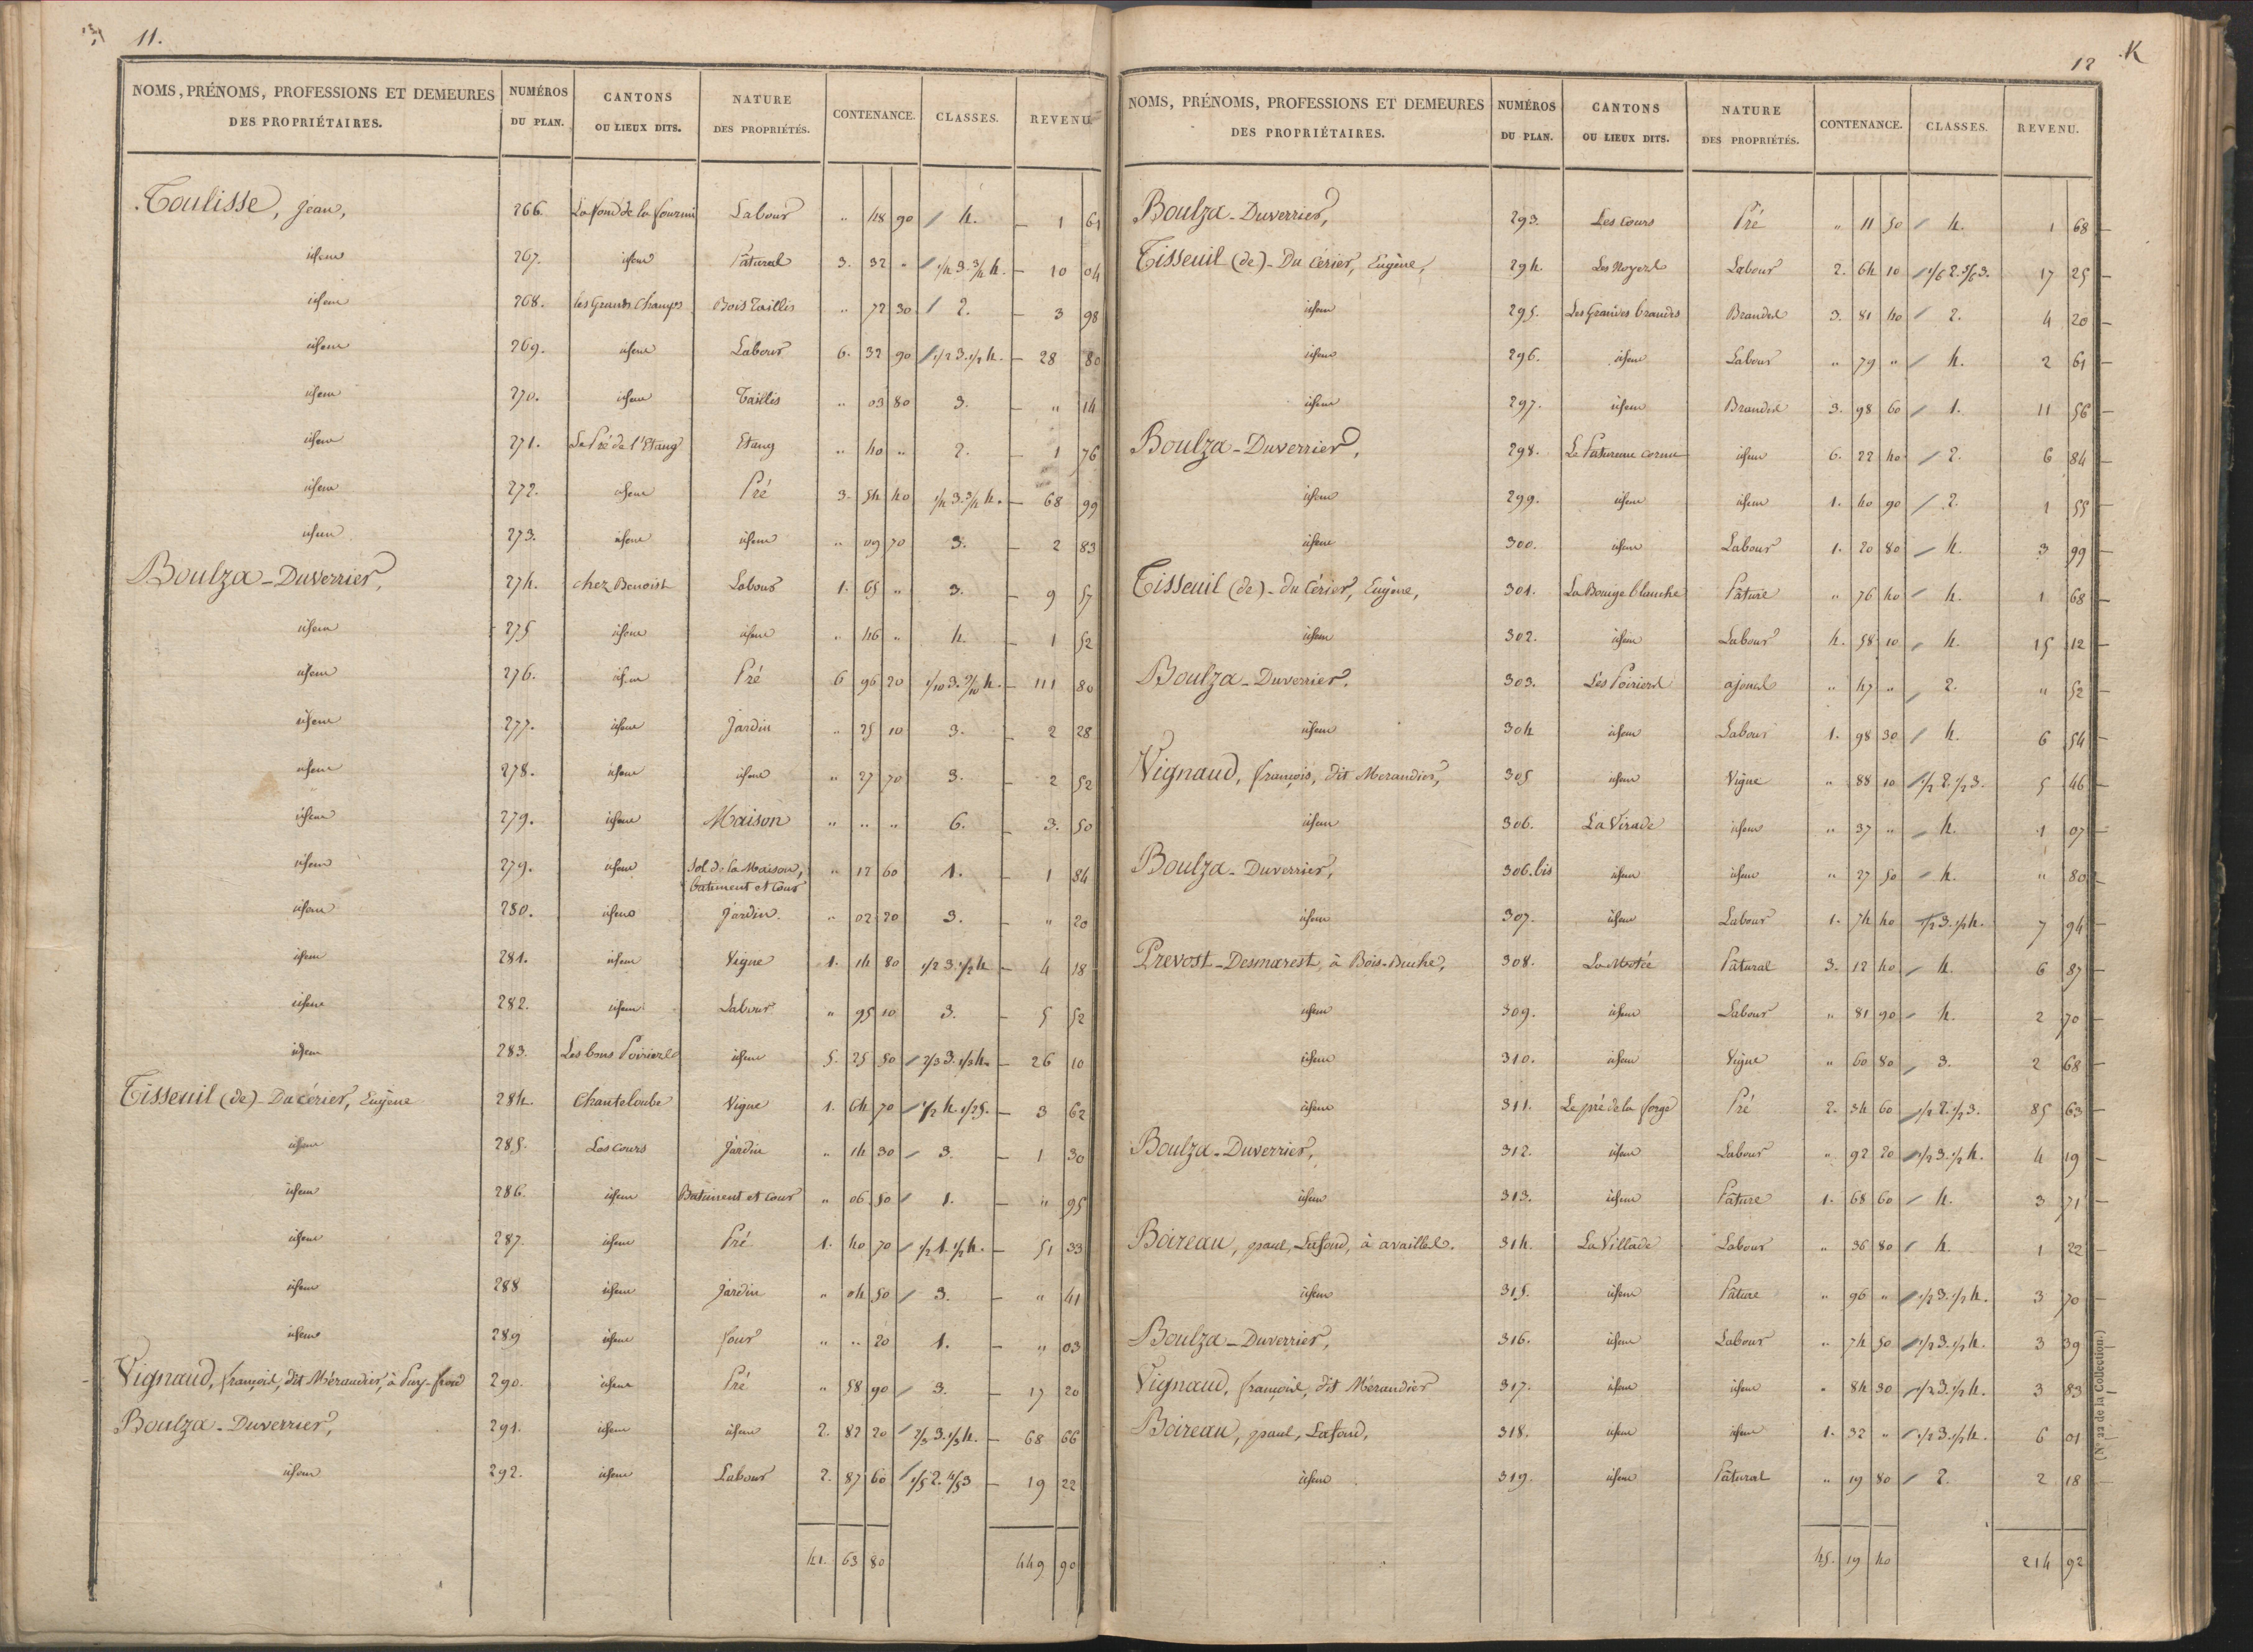 11.
NOMS, PRÉNOMS, PROFESSIONS ET DEMEURES DES PROPRIÉTAIRES. NUMÉROS DU PLAN. CANTONS OU LIEUX DITS. NATURE DES PROPRIÉTÉS. CONTENANCE. CLASSES. REVENU.
Toulisse, Jean, 266. La fond de la fourmi Labour " 48 90 4. 1 61
idem 267. idem Pâtural 3. 32 " 1/4 3. 3/4 4. 10 04
idem 268. les Grands Champs Bois Taillis " 72 30 2. 3 98
idem 269. idem Labour 6. 32 90 1/2 3. 1/2 4. 28 80
idem 270. idem Taillis " 03 80 3. " 14
idem 271. Le Pré de l'Etang Etang " 40 " 2. 1 76
idem 272. idem Pré 3. 54 40 1/4 3. 3/4 4. 68 99
idem 273. idem idem " 09 70 3. 2 83
Boulza-Duverrier, 274. chez Benoist Labour 1. 65 " 3. 9 57
idem 275 idem idem " 46 " 4. 1 52
idem 276. idem Pré 6 96 20 1/10 3. 9/10 4. 111 80
idem 277. idem Jardin " 25 10 3. 2 28
idem 278. idem idem " 27 70 3. 2 52
idem 279. idem Maison " " " 6. 3. 50
idem 279. idem Sol de la Maison, batiment et cour " 12 60 1. 1 84
idem 280. idem Jardin. " 02 20 3. " 20
idem 281. idem Vigne 1. 14 80 1/2 3. 1/2 4 4 18
idem 282. idem Labour " 95 10 3. 5 52
idem 283. Les bons Poiriers idem 5. 25 50 2/3 3. 1/3 4. 26 10
Tisseuil (de)-Du cérier, Eugène 284. Chanteloube Vigne 1. 64 70 1/2 4. 1/2 5. 3 62
idem 285. Les cours Jardin " 14 30 3. 1 30
idem 286. idem Batiment et cour " 06 50 1. " 95
idem 287. idem Pré 1. 40 70 1/2 1. 1/2 4. 51 33
idem 288 idem Jardin " 04 50 3. " 41
idem 289 idem four " " 20 1. " 03
Vignaud, françois, dit Mérandier, à Puy-froid 290. idem Pré " 58 90 3. 17 20
Boulza-Duverrier, 291. idem idem 2. 82 20 2/3 3. 1/3 4. 68 66
idem 292. idem Labour 2. 87 60 1/5 2. 4/5 3 19 22
41. 63 80 449 90
12
K
NOMS, PRÉNOMS, PROFESSIONS ET DEMEURES DES PROPRIÉTAIRES. NUMÉROS DU PLAN. CANTONS OU LIEUX DITS. NATURE DES PROPRIÉTÉS. CONTENANCE. CLASSES. REVENU.
Boulza-Duverrier, 293. Les cours Pré " 11 50 4. 1 68
Tisseuil (de)-Du Cérier, Eugène, 294. Les Noyers Labour 2. 64 10 1/6 2. 5/6 3. 17 25
idem 295. Les Grandes brandes Brandes 3. 81 40 2. 4 20
idem 296. idem Labour " 79 " 4. 2 61
idem 297. idem Brandes 3. 98 60 1. 11 56
Boulza-Duverrier, 298. Le Patureau cornu idem 6. 22 40 2. 6 84
idem 299. idem idem 1. 40 90 2. 1 55
idem 300. idem Labour 1. 20 80 4. 3 99
Tisseuil (de)-du Cérier, Eugène, 301. La Bouige blanche Pâture " 76 40 4. 1 68
idem 302. idem Labour 4. 58 10 4. 15 12
Boulza-Duverrier. 303. Les Poiriers ajoncs " 47 " 2. " 52
idem 304 idem Labour 1. 98 30 4. 6 54
Vignaud, françois, dit Merandier, 305 idem Vigne " 88 10 1/2 2. 1/2 3. 5 46
idem 306. La Virade idem " 37 " 4. 1 07
Boulza-Duverrier, 306.bis idem idem " 27 50 4. " 80
idem 307. idem Labour 1. 74 40 1/2 3. 1/2 4. 7 94
Prevost-Desmarest, à Bois-Buche, 308. La Motée Pâtural 3. 12 40 4. 6 87
idem 309. idem Labour " 81 90 4. 2 70
idem 310. idem Vigne " 60 80 3. 2 68
idem 311. Le pré de la forge Pré 2. 34 60 1/2 2. 1/2 3. 85 63
Boulza-Duverrier, 312. idem Labour " 92 20 1/2 3. 1/2 4. 4 19
idem 313. idem Pâture 1. 68 60 4. 3 71
Boireau, paul, Lafond, à availles. 314. La Villade Labour " 36 80 4. 1 22
idem 315. idem Pâture " 96 " 1/2 3. 1/2 4. 3 70
Boulza-Duverrier, 316. idem Labour " 74 50 1/2 3. 1/2 4. 3 39
Vignaud, françois, dit Mérandier 317. idem idem " 84 30 1/2 3. 1/2 4. 3 83
Boireau, paul, Lafond, 318. idem idem 1. 32 " 1/2 3. 1/2 4. 6 01
idem 319. idem Pâtural " 19 80 2. 2 18
45. 19 40 214 92
(N° 22 de la Collection.)